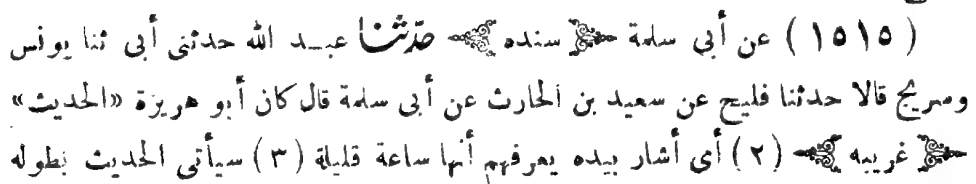 ( ١٥١٥ ) عن أبي سلمة ﴿ سنده ﴾ حدّثنا عبد الله حدثنى أبى ثنا يونس
وسريج قالا حدثنا فليح عن سعيد بن الحارث عن أبى سلمة قال كان أبو هريرة «الحديث»
﴿ غريبه ﴾ (٢) أى أشار بيده يعرفهم أنها ساعة قليلة (٣) سيأتى الحديث بطوله